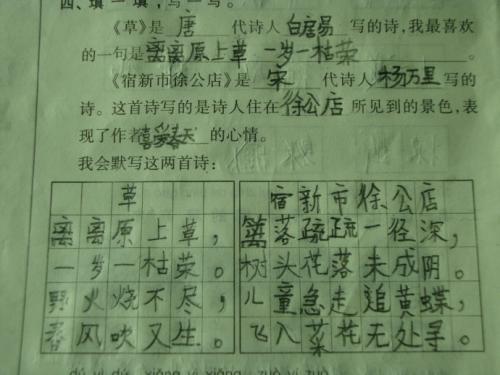 四、填一填,写一写。
《草》是 唐 代诗人 白居易 写的诗,我最喜欢
的一句是 离离原上草 一岁一枯荣 。
《宿新市徐公店》是 宋 代诗人 杨万里 写的
诗。这首诗写的是诗人住在 徐公店 所见到的景色,表
现了作者 喜爱春天 的心情。
我会默写这两首诗:
草
离离原上草,
一岁一枯荣。
野火烧不尽,
春风吹又生。
宿新市徐公店
篱落疏疏一径深,
树头花落未成阴。
儿童急走追黄蝶,
飞入菜花无处寻。